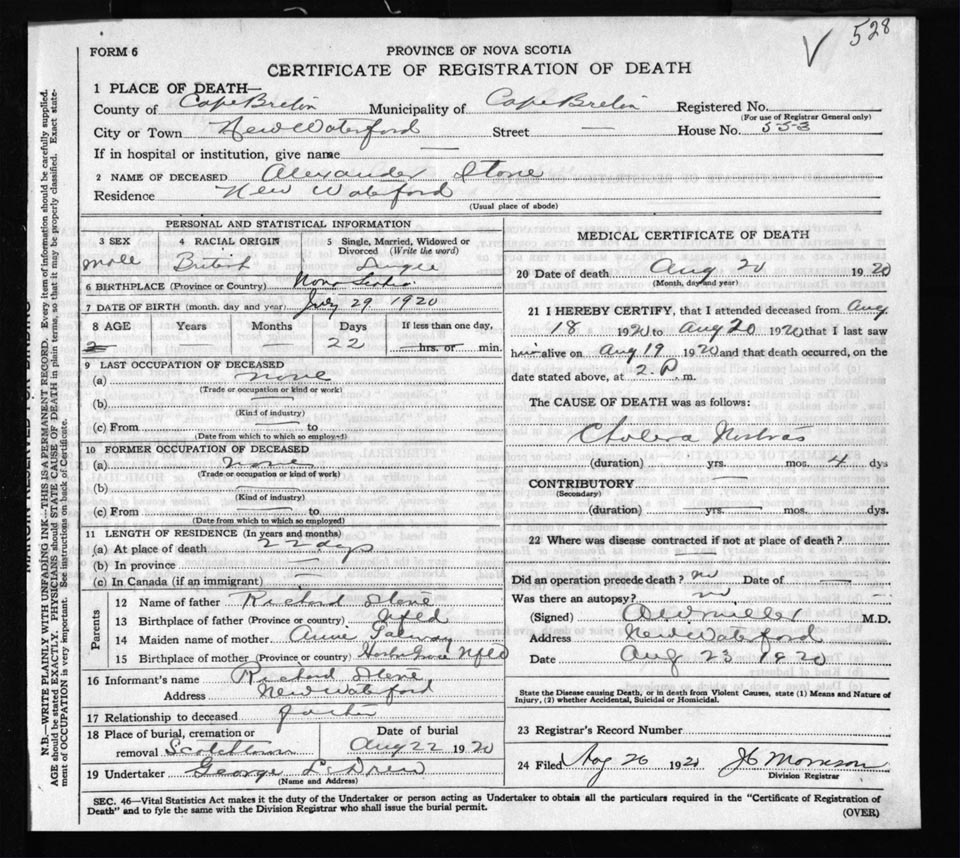 528
FORM 6
PROVINCE OF NOVA SCOTIA
CERTIFICATE OF REGISTRATION OF DEATH
1 PLACE OF DEATH—
County of Cape Breton Municipality of Cape Breton Registered No.
(For use of Registrar General only)
City or Town New Waterford Street — House No. 553
If in hospital or institution, give name —
2 NAME OF DECEASED Alexander Stone
Residence New Waterford
(Usual place of abode)
PERSONAL AND STATISTICAL INFORMATION
3 SEX 4 RACIAL ORIGIN 5 Single, Married, Widowed or Divorced (Write the word)
Male British Single
6 BIRTHPLACE (Province or Country) Nova Scotia
7 DATE OF BIRTH (month, day and year) July 29 1920
8 AGE Years Months Days If less than one day,
— 22 hrs. or min.
9 LAST OCCUPATION OF DECEASED
(a) none
(Trade or occupation or kind or work)
(b) —
(Kind of industry)
(c) From — to
(Date from which to which so employed)
10 FORMER OCCUPATION OF DECEASED
(a) none
(Trade or occupation or kind of work)
(b) —
(Kind of industry)
(c) From — to
(Date from which to which so employed)
11 LENGTH OF RESIDENCE (In years and months)
(a) At place of death 22 days
(b) In province —
(c) In Canada (if an immigrant) —
Parents
12 Name of father Richard Stone
13 Birthplace of father (Province or country) Nfld
14 Maiden name of mother Annie
15 Birthplace of mother (Province or country) Harbor Grace Nfld
16 Informant's name Richard Stone
Address New Waterford
17 Relationship to deceased father
18 Place of burial, cremation or removal Scotchtown Date of burial Aug 22 1920
19 Undertaker George
(Name and Address)
MEDICAL CERTIFICATE OF DEATH
20 Date of death Aug 20 1920
(Month, day and year)
21 I HEREBY CERTIFY, that I attended deceased from Aug
18 1920 to Aug 20 1920 that I last saw
him alive on Aug 19 1920 and that death occurred, on the
date stated above, at 2. P m.
The CAUSE OF DEATH was as follows:
Cholera Nostras
(duration) yrs. mos. 4 dys
CONTRIBUTORY —
(Secondary)
(duration) — yrs. — mos. dys.
22 Where was disease contracted if not at place of death? —
Did an operation precede death? no Date of —
Was there an autopsy? no
(Signed) M.D.
Address New Waterford
Date Aug 23 1920
State the Disease causing Death, or in death from Violent Causes, state (1) Means and Nature of
Injury, (2) whether Accidental, Suicidal or Homicidal.
23 Registrar's Record Number
24 Filed Aug 26 192 Morrison
Division Registrar
SEC. 46—Vital Statistics Act makes it the duty of the Undertaker or person acting as Undertaker to obtain all the particulars required in the "Certificate of Registration of
Death" and to fyle the same with the Division Registrar who shall issue the burial permit.
(OVER)
N.B.—WRITE PLAINLY WITH UNFADING INK—THIS IS A PERMANENT RECORD. Every item of information should be carefully supplied.
AGE should be stated EXACTLY. PHYSICIANS should STATE CAUSE OF DEATH in plain terms, so that it may be properly classified. Exact state-
ment of OCCUPATION is very important. See instructions on back of Certificate.